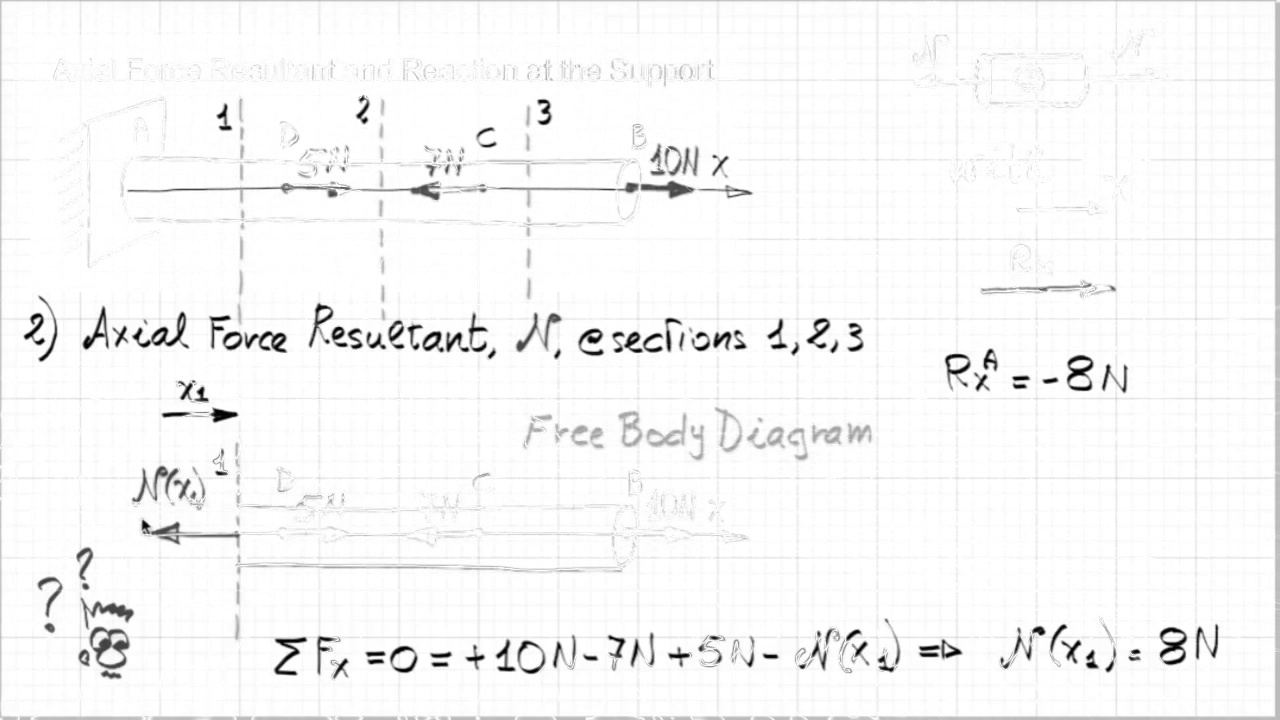 Axial Force Resultant and Reaction at the Support
N N
A 1 D 5N 2 7N C 3 B 10N x
with x
Rx
2) Axial Force Resultant, N, @sections 1,2,3
Rx^A = -8N
x1
Free Body Diagram
N(x1) 1 D 5N 7N C B 10N x
? ?
ΣFx = 0 = +10N - 7N + 5N - N(x1) => N(x1) = 8N